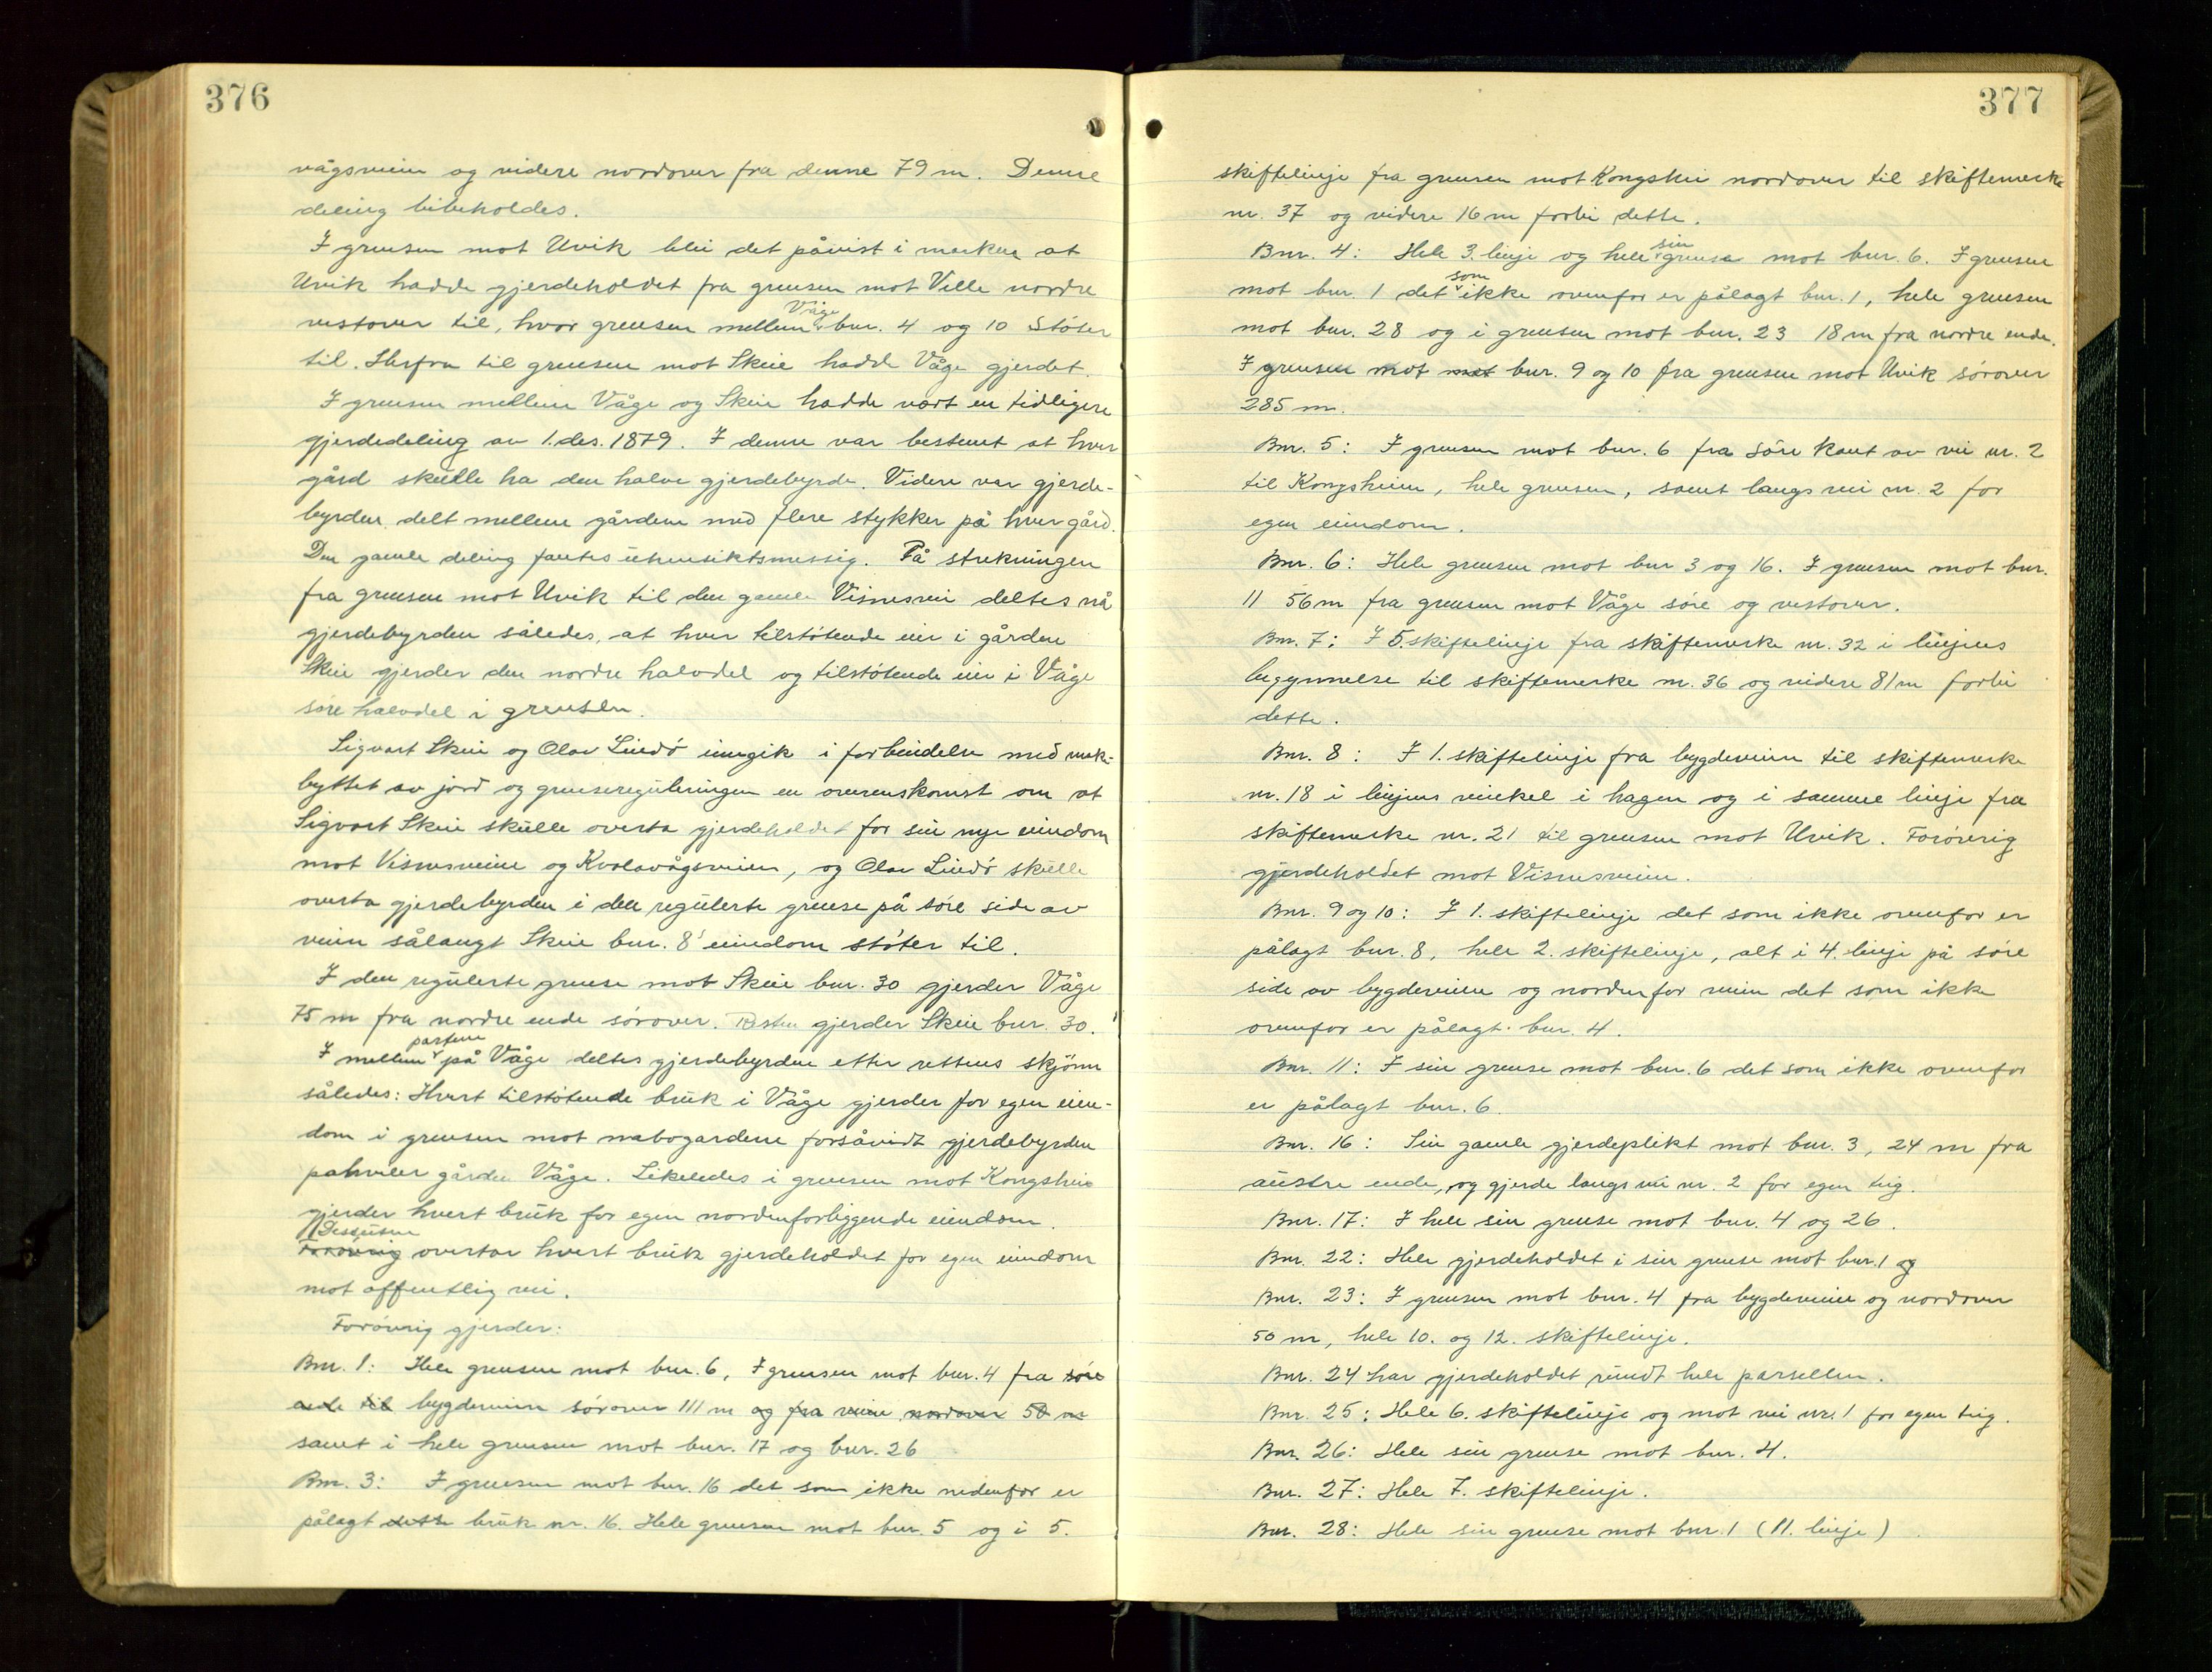 376
vågsveien og videre nordover fra denne 79 m. Denne
deling bibeholdes.
I grensen mot Utvik blei det påvist i marken at
Utvik hadde gjerdeholdet fra grensen mot Velle nordre
vestover til, hvor grensen mellem Våge bnr. 4 og 10 støter
til. Herfra til grensen mot Skeie hadde Våge gjerdet.
I grensen mellem Våge og Skeie hadde vært en tidligere
gjerdedeling av 1. des. 1879. I denne var bestemt at hver
gård skulle ha den halve gjerdebyrde. Videre var gjerde-
byrden delt mellem gårdene med flere stykker på hver gård.
Den gamle deling fantes uhensiktsmessig. På strekningen
fra grensen mot Utvik til den gamle Visnesvei deltes nå
gjerdebyrden således, at hver tilstøtende eier i gården
Skeie gjerder den nordre halvdel og tilstøtende eier i Våge
søre halvdel i grensen.
Sigvart Skeie og Olav Lindø inngik i forbindelse med make-
byttet av jord og grensereguleringen en overenskomst om at
Sigvart Skeie skulle overta gjerdeholdet for sin nye eiendom
mot Visnesveien og Kvalavågsveien, og Olav Lindø skulle
overta gjerdebyrden i den regulerte grense på søre side av
veien sålangt Skeie bnr. 8' eiendom støter til.
I den regulerte grense mot Skeie bnr. 30 gjerder Våge
75 m fra nordre ende sørover. Resten gjerder Skeie bnr. 30.
I mellem partene på Våge deltes gjerdebyrden etter rettens skjønn
således: Hvert tilstøtende bruk i Våge gjerder for egen eien-
dom i grensen mot nabogardene forsåvidt gjerdebyrden
pahviler gården Våge. Likeledes i grensen mot Kongsheim
gjerder hvert bruk for egen nordenforliggende eiendom.
Forøvrig Dessuten overtar hvert bruk gjerdeholdet for egen eiendom
mot offentlig vei.
Forøvrig gjerder:
Bnr. 1: Hele grensen mot bnr. 6, I grensen mot bnr. 4 fra søre
ende til bygdeveien sørover 111 m og fra veien nordover 50 m
samt i hele grensen mot bnr. 17 og bnr. 26
Bnr. 3: I grensen mot bnr. 16 det som ikke nedenfor er
pålagt dette bruk nr. 16. Hele grensen mot bnr. 5 og i 5.
377
skiftelinje fra grensen mot Kongshei nordover til skiftemerke
nr. 37 og videre 16 m forbi dette.
Bnr. 4: Hele 3. linje og hele sin grense mot bnr. 6. I grensen
mot bnr. 1 det som ikke ovenfor er pålagt bnr. 1, hele grensen
mot bnr. 28 og i grensen mot bnr. 23 18 m fra nordre ende.
I grensen mot mot bnr. 9 og 10 fra grensen mot Utvik sørover
285 m.
Bnr. 5: I grensen mot bnr. 6 fra søre kant av vei nr. 2
til Kongsheim, hele grensen, samt langs vei nr. 2 for
egen eiendom.
Bnr. 6: Hele grensen mot bnr 3 og 16. I grensen mot bnr.
11 56 m fra grensen mot Våge søre og vestover.
Bnr. 7: I 5. skiftelinje fra skiftemerke nr. 32 i linjens
begynnelse til skiftemerke nr. 36 og videre 81 m forbi
dette.
Bnr. 8: I 1. skiftelinje fra bygdeveien til skiftemerke
nr. 18 i linjens vinkel i hagen og i samme linje fra
skiftemerke nr. 21 til grensen mot Utvik. Forøvrig
gjerdeholdet mot Visnesveien.
Bnr. 9 og 10: I 1. skiftelinje det som ikke ovenfor er
pålagt bnr. 8, hele 2. skiftelinje, alt i 4. linje på søre
side av bygdeveien og nordenfor veien det som ikke
ovenfor er pålagt bnr. 4.
Bnr. 11: I sin grense mot bnr. 6 det som ikke ovenfor
er pålagt bnr. 6.
Bnr. 16: Sin gamle gjerdeplikt mot bnr. 3, 24 m fra
austre ende, og gjerde langs vei nr. 2 for egen teig.
Bnr. 17: I hele sin grense mot bnr. 4 og 26.
Bnr. 22: Hele gjerdeholdet i sin grense mot bnr. 1 og
Bnr. 23: I grensen mot bnr. 4 fra bygdeveien og nordover
50 m, hele 10. og 12. skiftelinje.
Bnr. 24 har gjerdeholdet rundt hele parsellen.
Bnr. 25: Hele 6. skiftelinje og mot vei nr. 1 for egen teig.
Bnr. 26: Hele sin grense mot bnr. 4.
Bnr. 27: Hele 7. skiftelinje.
Bnr. 28: Hele sin grense mot bnr. 1 (11. linje)